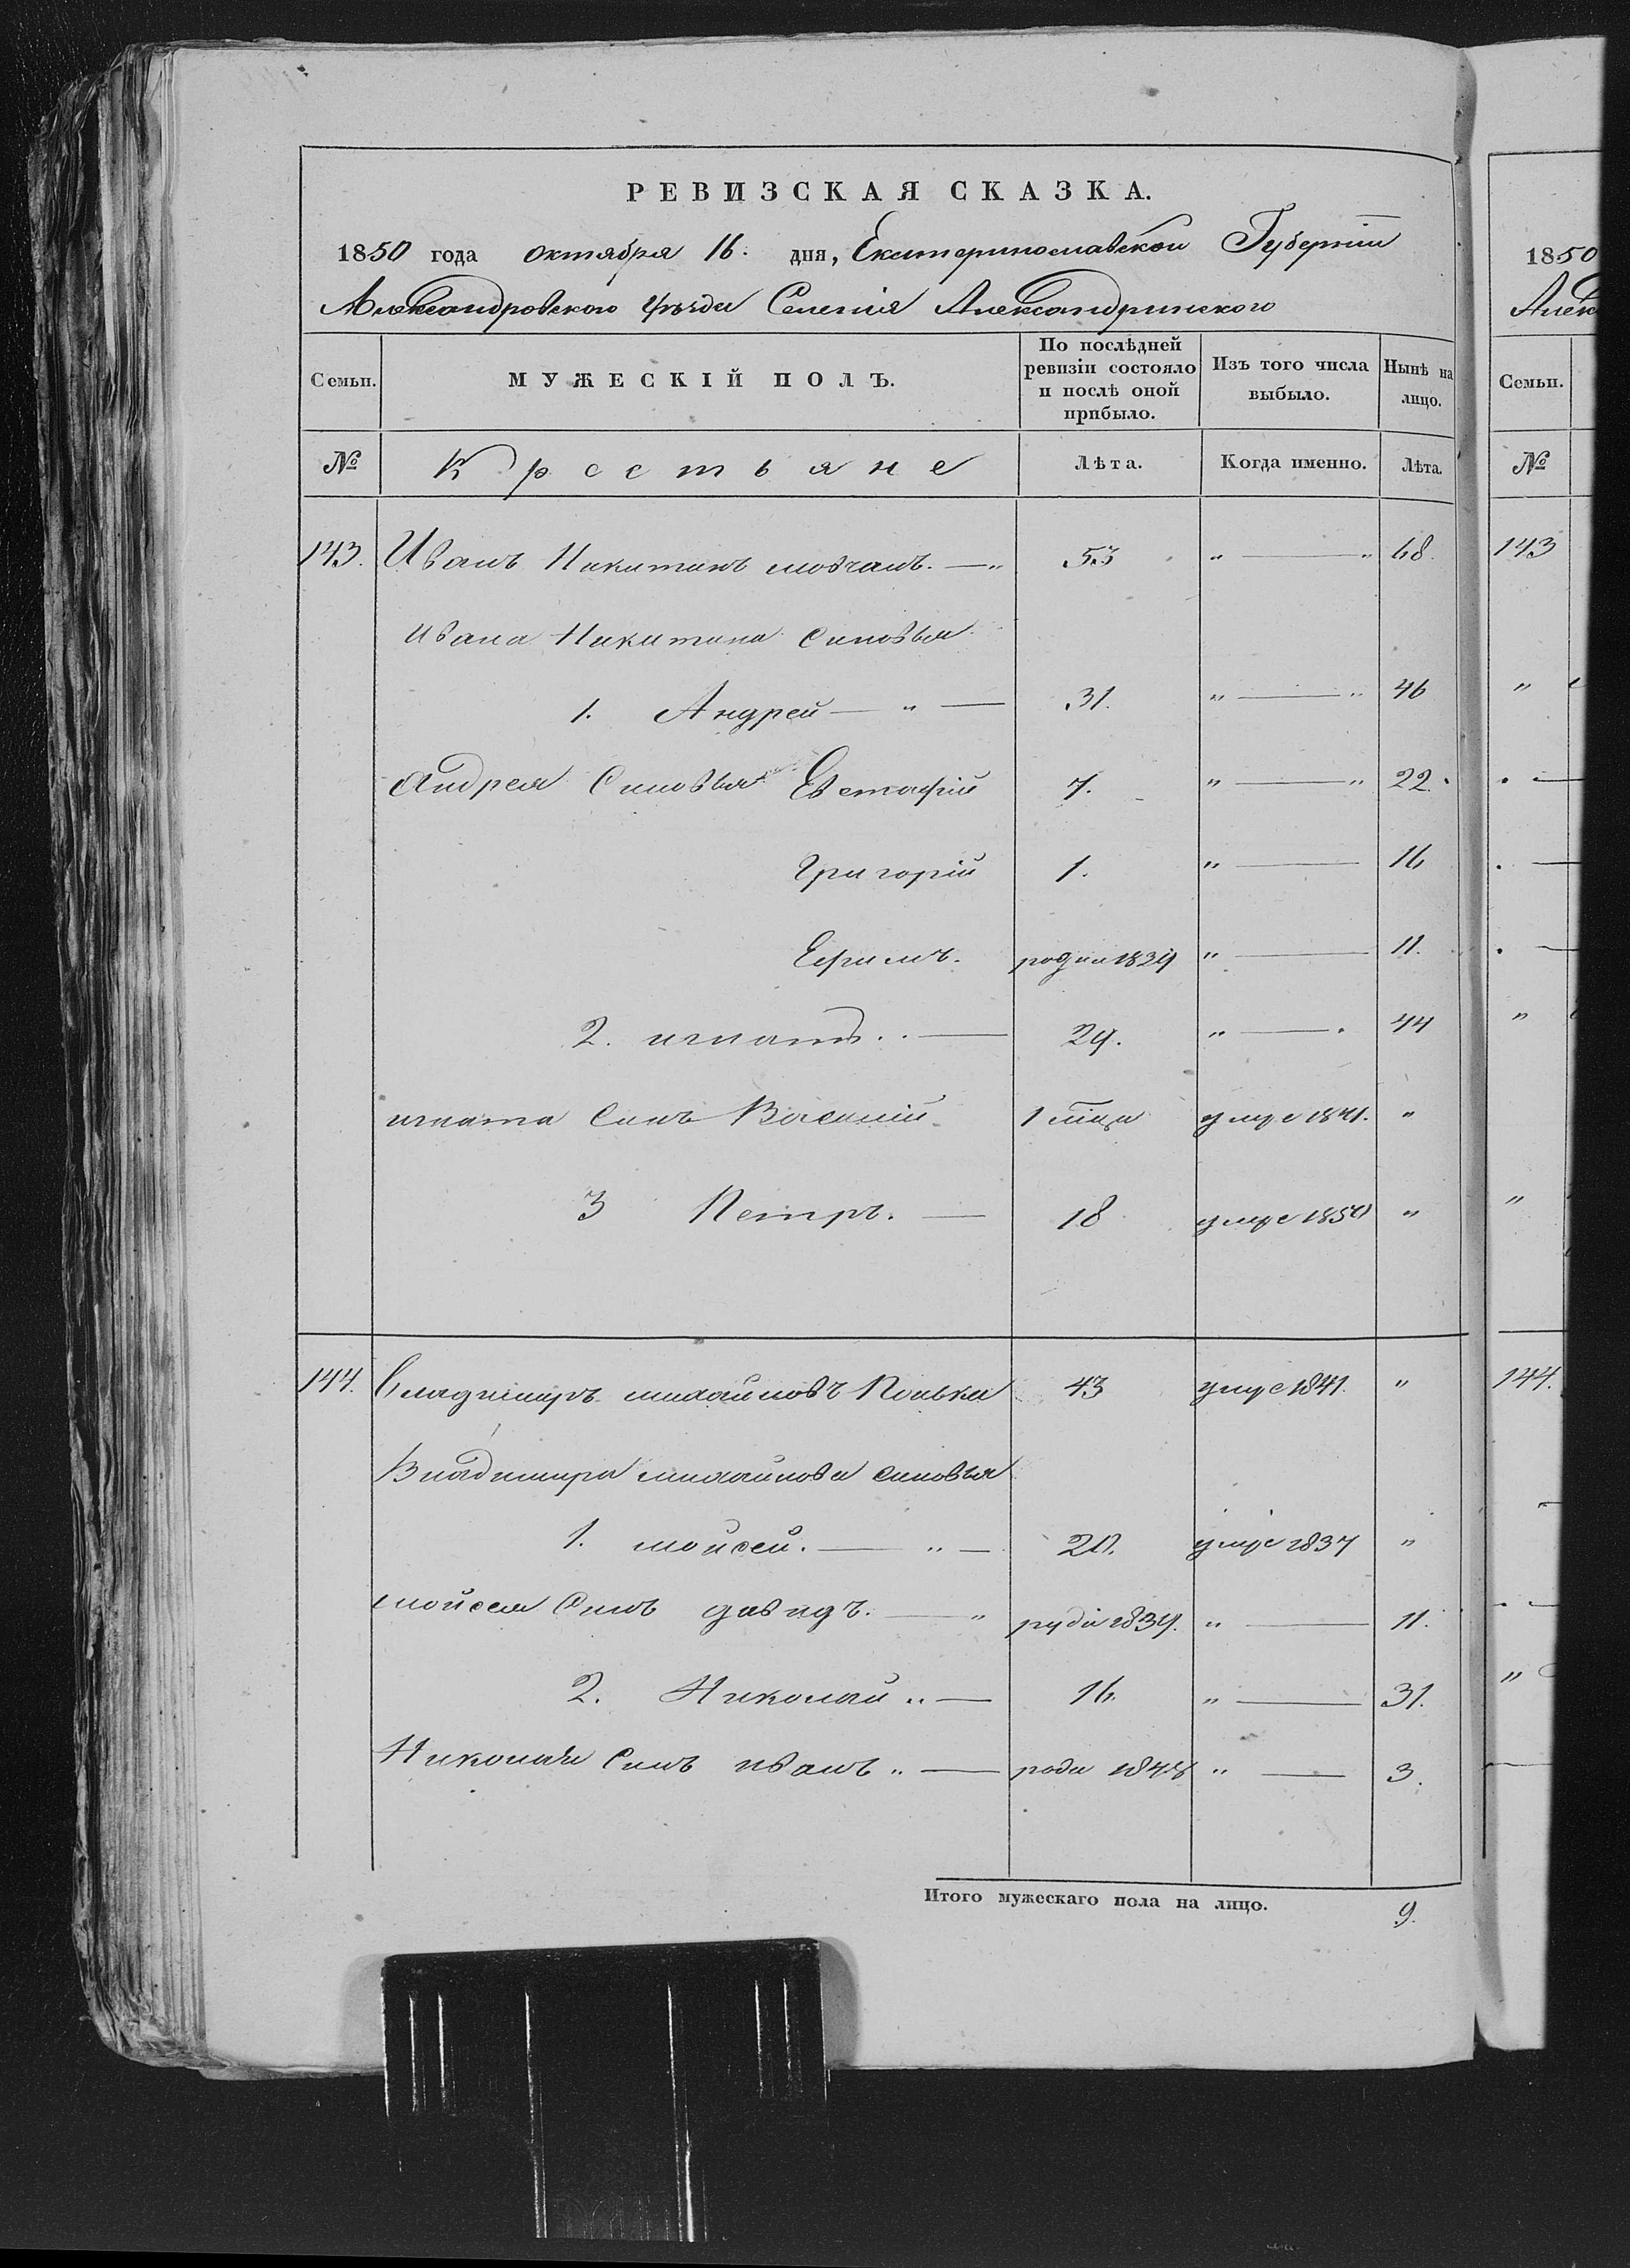 РЕВИЗСКАЯ СКАЗКА.
1850 года октября 16. дня, Екатеринославской Губерніи
Александровского Уѣзда Селенія Александринского
Семьи. МУЖЕСКІЙ ПОЛЪ. По послѣдней ревизіи состояло и послѣ оной прибыло. Изъ того числа выбыло. Нынѣ на лицо.
№ Крестьяне Лѣта. Когда именно. Лѣта.
143. Иванъ Никитинъ мовчанъ. — „ 53 „ — „ 68.
Ивана Никитина Синовья
1. Андрей — „ — 31. „ — „ 46
Андрея Синовья Евстафій 7. „ — „ 22.
Григорій 1. „ — 16
Ефимъ. родил 1839 „ — 11.
2. игнатъ. — 29. „ — 44
игната Синъ Василій 1 мѣца умре 1841. „
3 Петръ. — 18 умре 1850 „
144. Владимиръ михайловъ Полька 43 умре 1841. „
Владимира михайлова синовья
1. мойсей. — „ — 20. умре 1837 „
мойсея Синъ давидъ. — „ роди 1839. „ — 11.
2. Николай „ — 16. „ — 31.
Николая Синъ иванъ „ — роди 1848 „ — 3.
Итого мужескаго пола на лицо. 9.
1850
Алек
Семьи.
№
143
144.